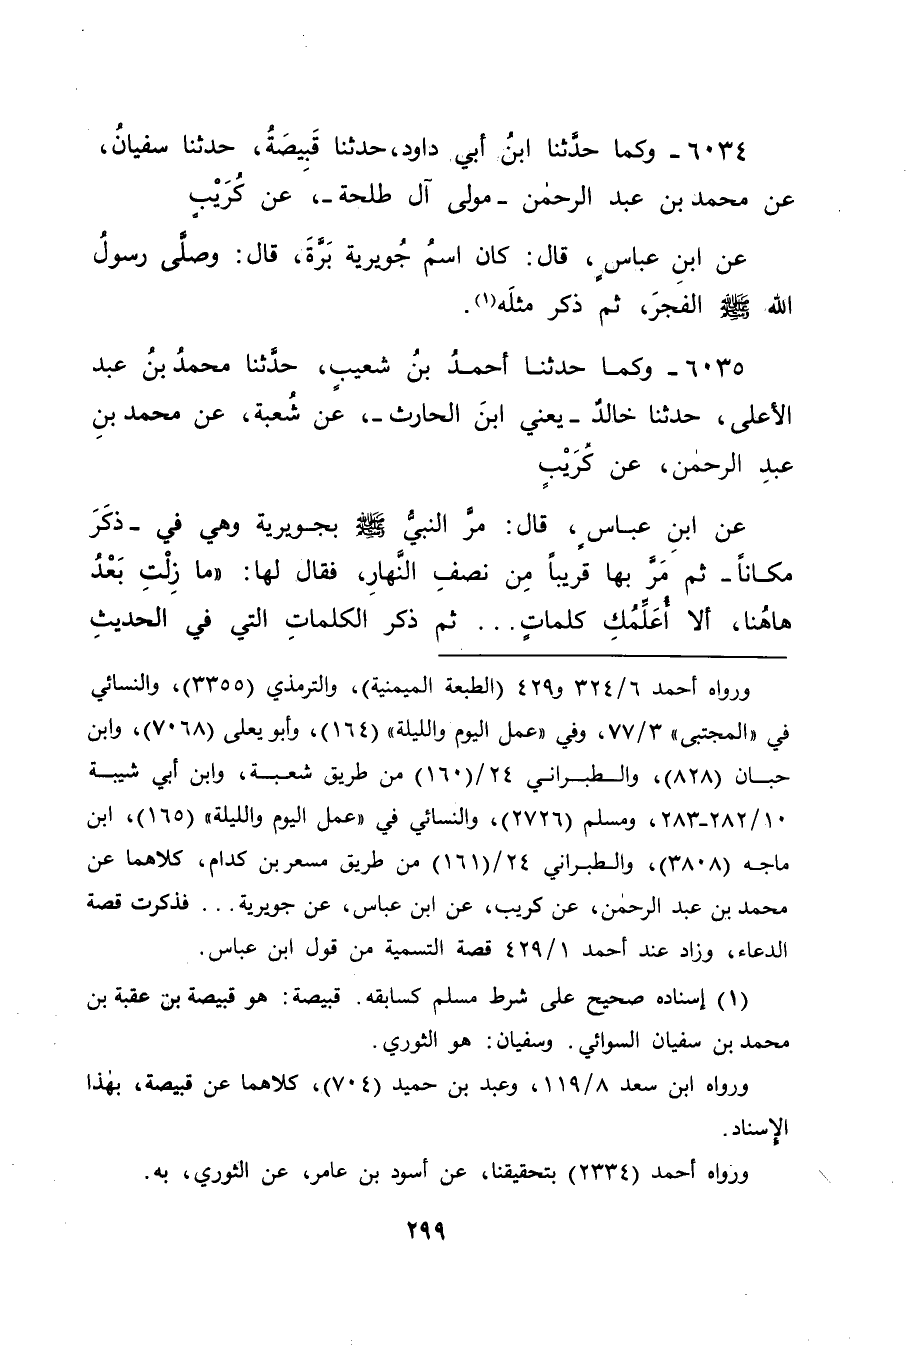 ٦٠٣٤ ـ وكما حدَّثنا ابنُ أبي داود، حدثنا قَبِيصَةُ، حدثنا سفيانُ،
عن محمد بن عبد الرحمٰن ـ مولى آل طلحة ـ، عن كُرَيْبٍ
عن ابنِ عباسٍ، قال: كان اسمُ جُويرية بَرَّةَ، قال: وصلَّى رسولُ
الله ﷺ الفجرَ، ثم ذكر مثلَه(١).
٦٠٣٥ ـ وكما حدثنا أحمدُ بنُ شعيبٍ، حدَّثنا محمدُ بنُ عبد
الأعلى، حدثنا خالدٌ ـ يعني ابنَ الحارث ـ، عن شُعبة، عن محمد بنِ
عبدِ الرحمٰن، عن كُرَيْبٍ
عن ابنِ عباسٍ، قال: مرَّ النبيُّ ﷺ بجويرية وهي في ـ ذكَرَ
مكاناً ـ ثم مَرَّ بها قريباً مِن نصفِ النَّهارِ، فقال لها: «ما زِلْتِ بَعْدُ
هاهُنا، ألا أُعَلِّمُكِ كلماتٍ... ثم ذكر الكلماتِ التي في الحديثِ
ورواه أحمد ٣٢٤/٦ و٤٢٩ (الطبعة الميمنية)، والترمذي (٣٣٥٥)، والنسائي
في «المجتبى» ٧٧/٣، وفي «عمل اليوم والليلة» (١٦٤)، وأبو يعلى (٧٠٦٨)، وابن
حبان (٨٢٨)، والطبراني ٢٤/(١٦٠) من طريق شعبة، وابن أبي شيبة
٢٨٢/١٠-٢٨٣، ومسلم (٢٧٢٦)، والنسائي في «عمل اليوم والليلة» (١٦٥)، ابن
ماجه (٣٨٠٨)، والطبراني ٢٤/(١٦١) من طريق مسعر بن كدام، كلاهما عن
محمد بن عبد الرحمٰن، عن كريب، عن ابن عباس، عن جويرية... فذكرت قصة
الدعاء، وزاد عند أحمد ٤٢٩/١ قصة التسمية من قول ابن عباس.
(١) إسناده صحيح على شرط مسلم كسابقه. قبيصة: هو قبيصة بن عقبة بن
محمد بن سفيان السوائي. وسفيان: هو الثوري.
ورواه ابن سعد ١١٩/٨، وعبد بن حميد (٧٠٤)، كلاهما عن قبيصة، بهٰذا
الإسناد.
ورواه أحمد (٢٣٣٤) بتحقيقنا، عن أسود بن عامر، عن الثوري، به.
٢٩٩